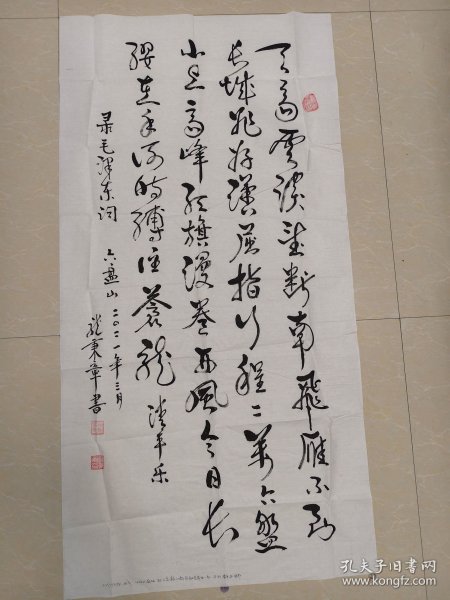 天高云淡望断南飞雁不到
长城非好汉屈指行程二万六盘
山上高峰红旗漫卷西风今日长
缨在手何时缚住苍龙 清平乐
录毛泽东词 六盘山 二〇二一年三月
秉章书
孔夫子旧书网